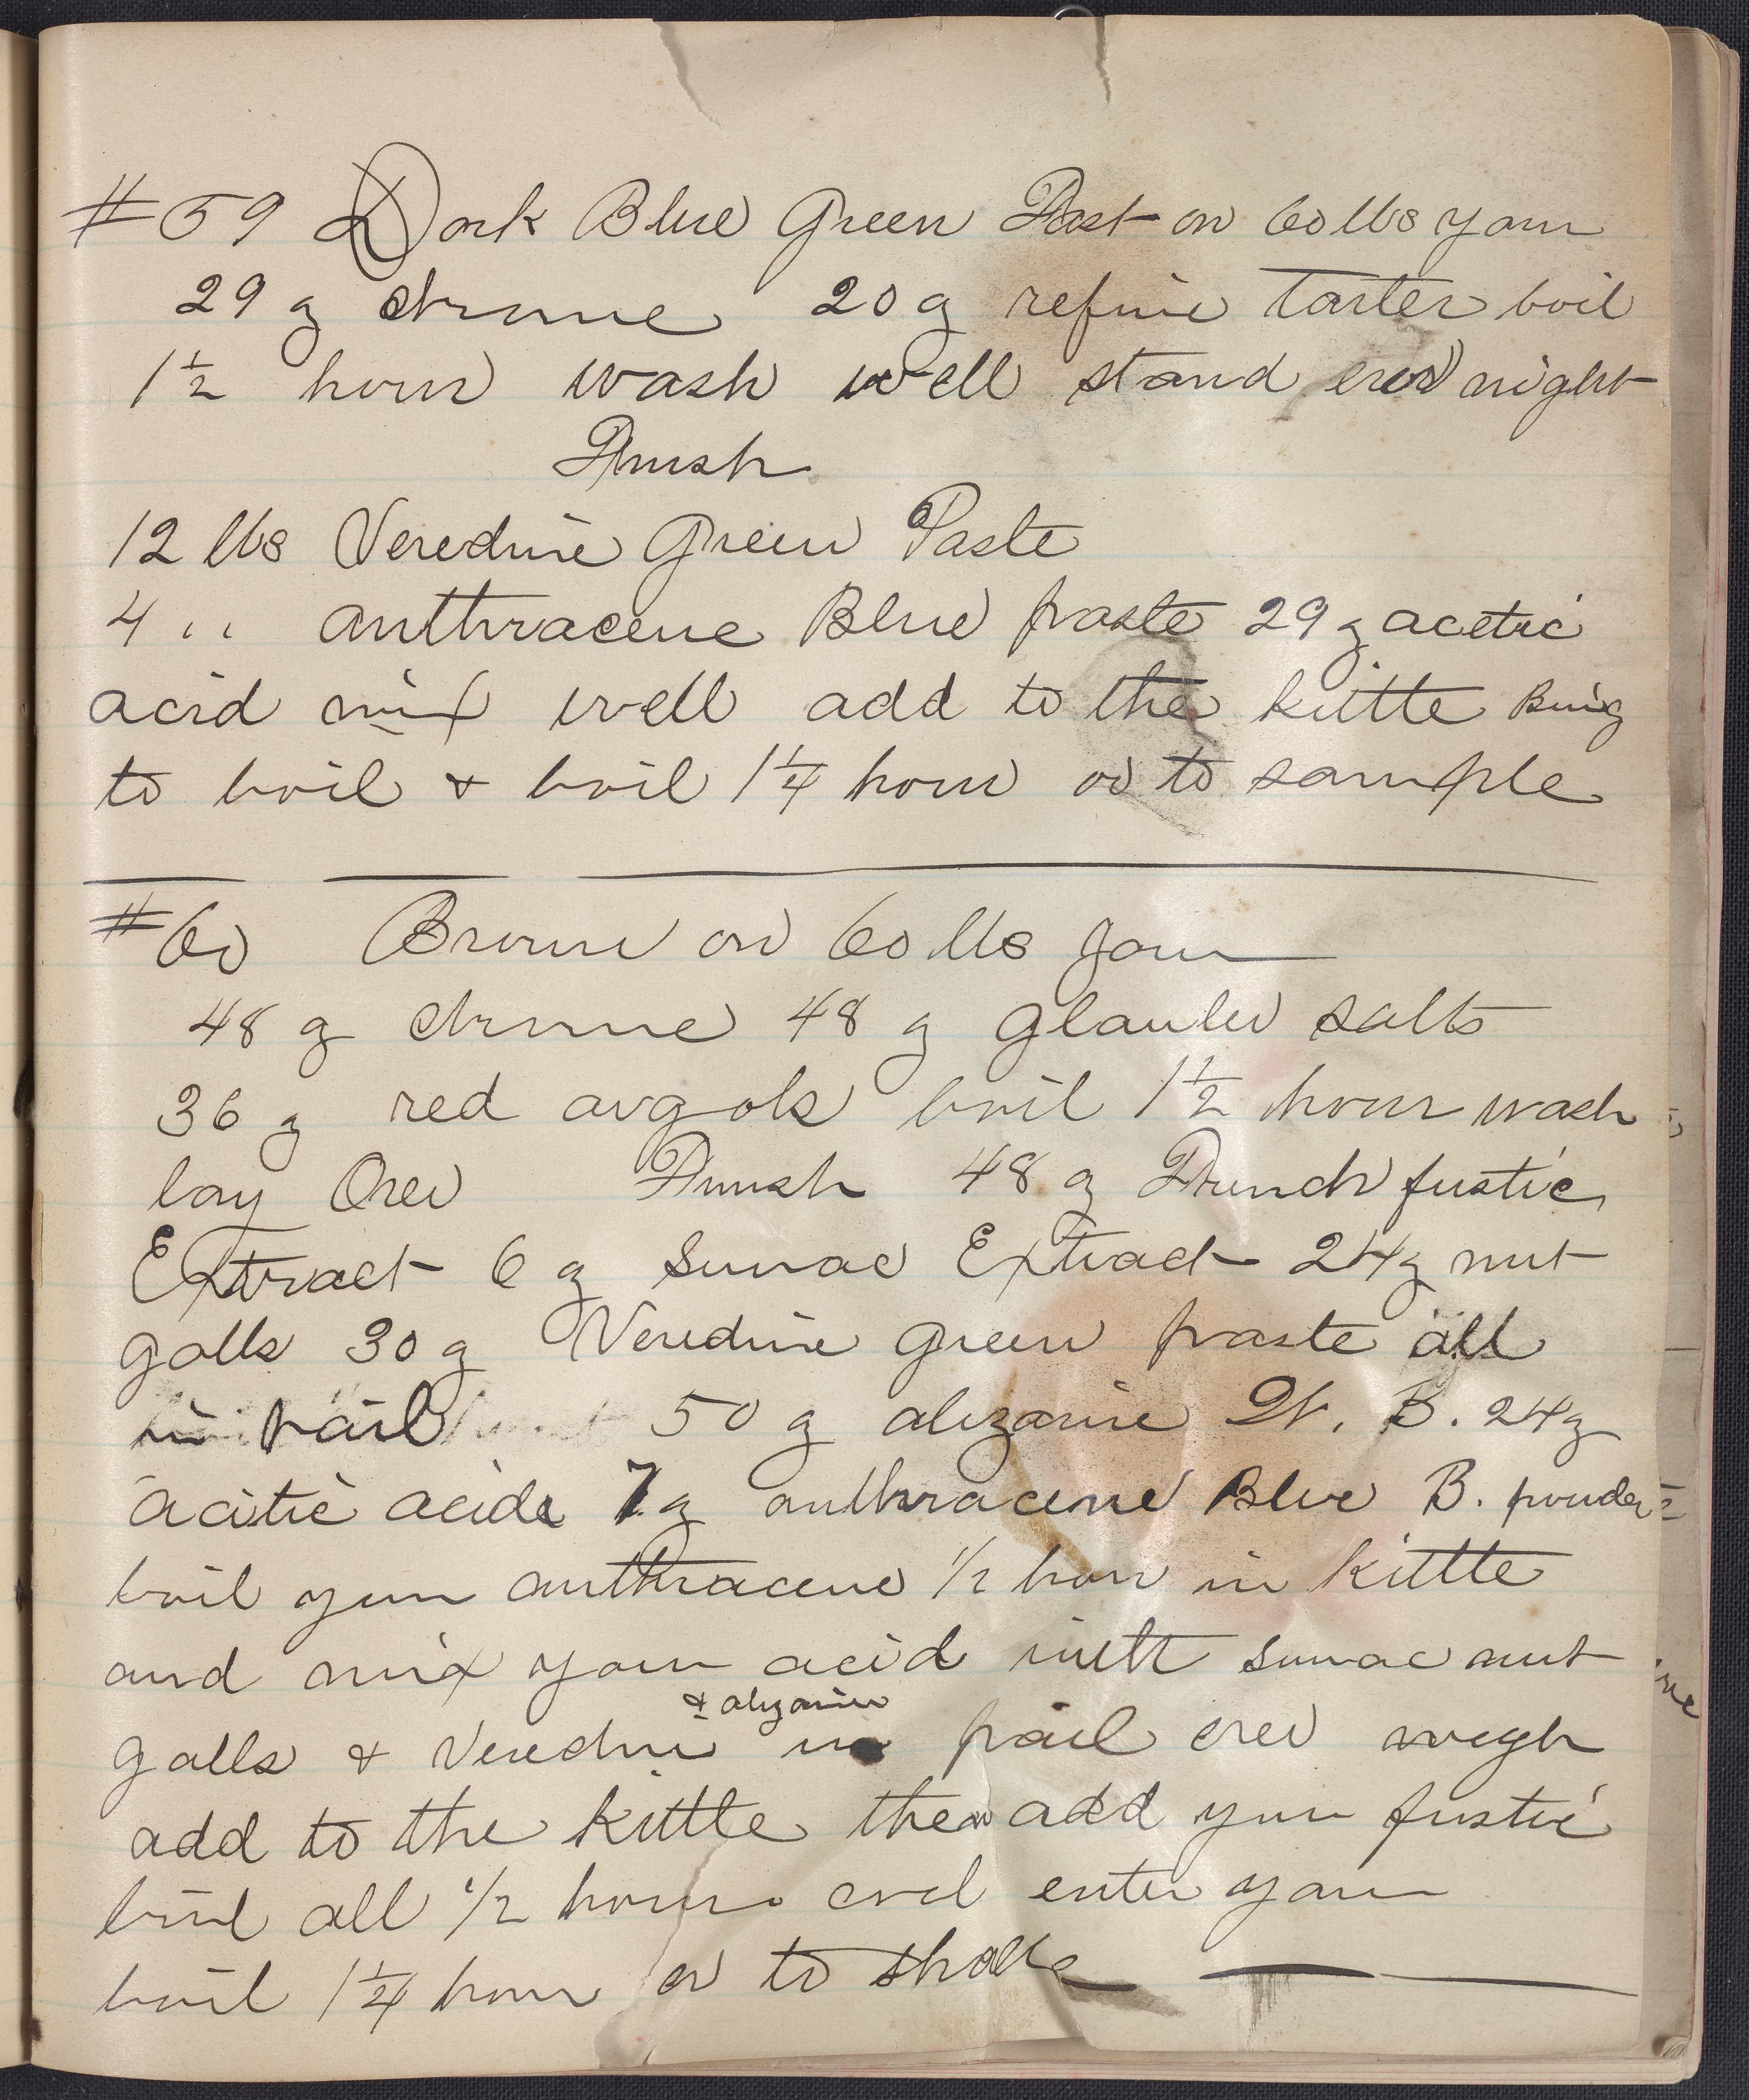 #59 Dark Blue Green Fast on 60 lbs yarn
29 ℥ chrome 20 ℥ refine Tarter boil
1½ hour wash well stand over night
Finish
12 lbs Veredine Green Paste
4 " anthracene Blue paste 29 ℥ acetic
acid mix well add to the kittle Bring
to boil & boil 1¼ hour or to sample
#60 Brown on 60 lbs yarn
48 ℥ chrome 48 ℥ glauber salts
36 ℥ red argols boil 1½ hour wash
lay Over Finish 48 ℥ French fustic
Extract 6 ℥ Sumac Extract 24 ℥ nut
galls 30 ℥ Veredine green paste all
in pail 50 ℥ alizarine W. B. 24 ℥
acitic acide 7 ℥ anthracene Blue B. powder
boil your anthracene 1/2 hour in kittle
and mix your acid with sumac nut
galls & Veredine & alizarine in pail over nigh
add to the kittle then add your fustic
boil all 1/2 hour and enter yarn
boil 1¼ hour or to shade